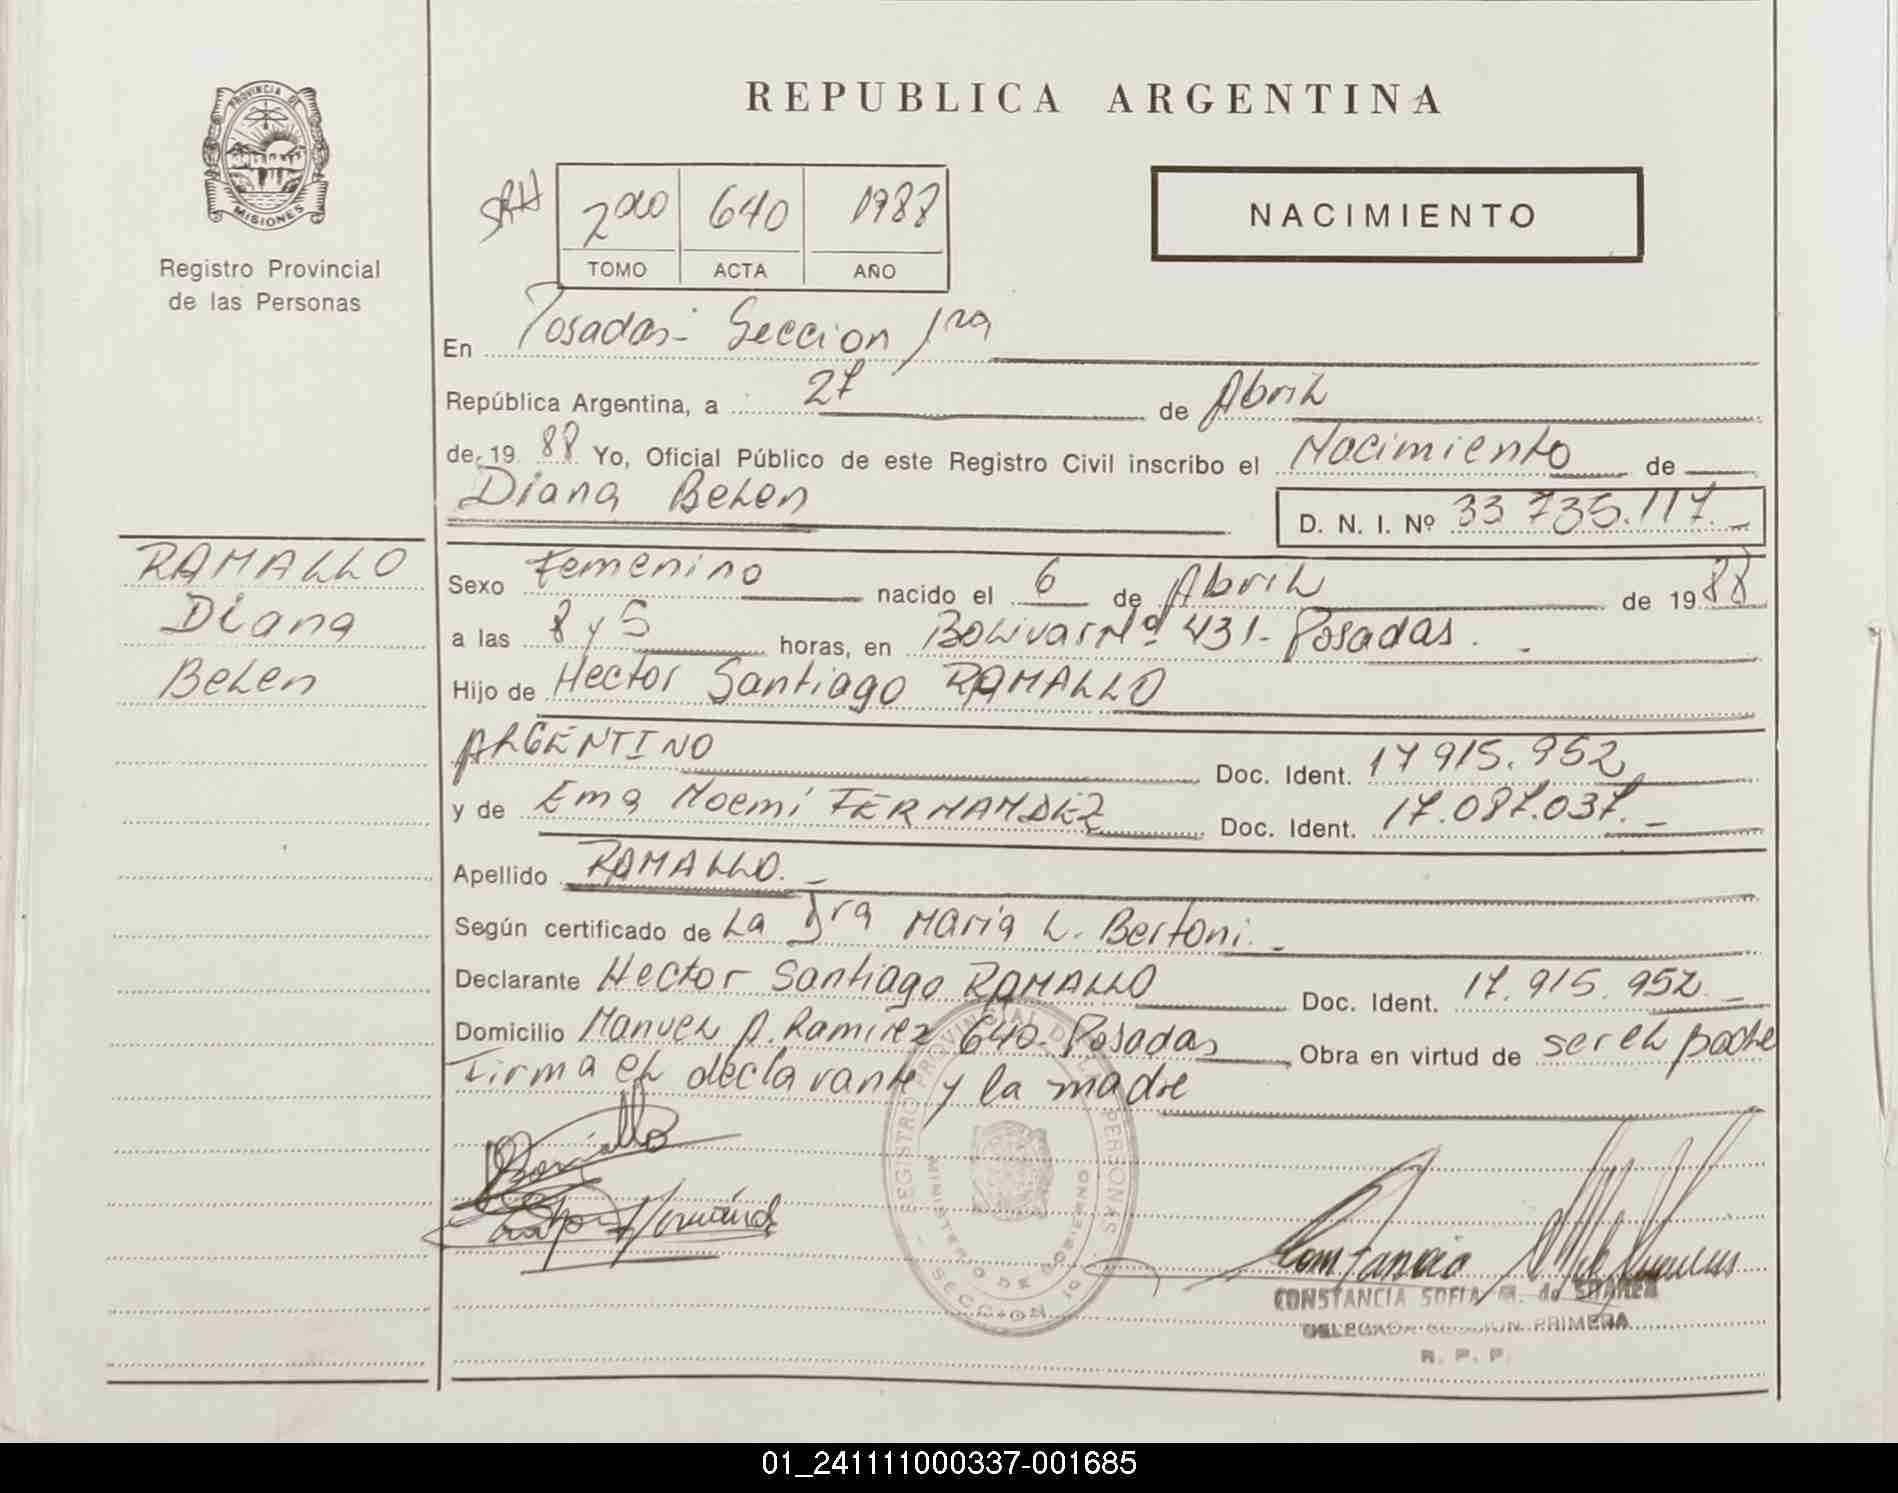 REPUBLICA ARGENTINA
PROVINCIA DE
MISIONES
Registro Provincial
de las Personas
2do 640 1988
TOMO ACTA AÑO
NACIMIENTO
En Posadas- Seccion 1ra
República Argentina, a 27 de Abril
de 19 88 Yo, Oficial Público de este Registro Civil inscribo el Nacimiento de
Diana Belen
D. N. I. Nº 33 735.117.-
RAMALLO
Diana
Belen
Sexo Femenino nacido el 6 de Abril de 19 88
a las 8 y 5 horas, en Bolivar Nº 431- Posadas. -
Hijo de Hector Santiago RAMALLO
ARGENTINO Doc. Ident. 17 915.952
y de Ema Noemi FERNANDEZ Doc. Ident. 17.087.037.-
Apellido RAMALLO.-
Según certificado de La Dra Maria L. Bertoni.-
Declarante Hector Santiago RAMALLO Doc. Ident. 17.915.952.-
Domicilio Manuel A. Ramirez 640- Posadas Obra en virtud de ser el padre
Firma el declarante y la madre
REGISTRO PROVINCIAL DE LAS PERSONAS
MINISTERIO DE GOBIERNO
SECCION 1º
CONSTANCIA SOFIA M. de
DELEGADA SECCION PRIMERA
R. P. P.
01_241111000337-001685